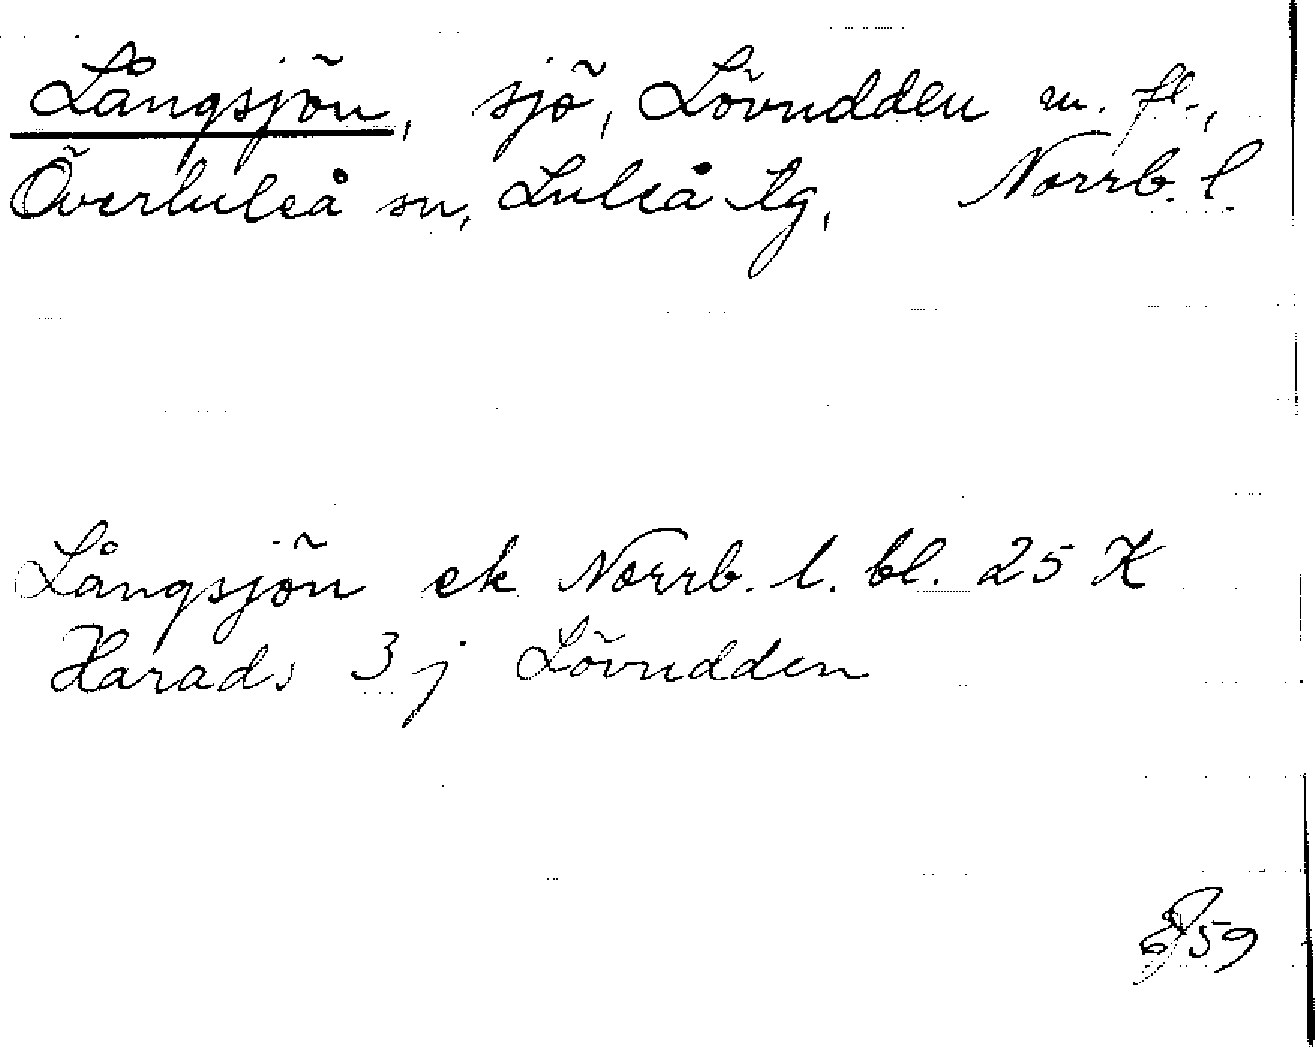 Långsjön, sjö, Lövudden m. fl.,
Överluleå sn, Luleå tg, Norrb. l.
Långsjön ek Norrb. l. bl. 25 K
Harads 3 j Lövudden
59